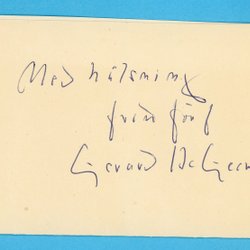 Med hälsning
från förf
Gerard De Geer